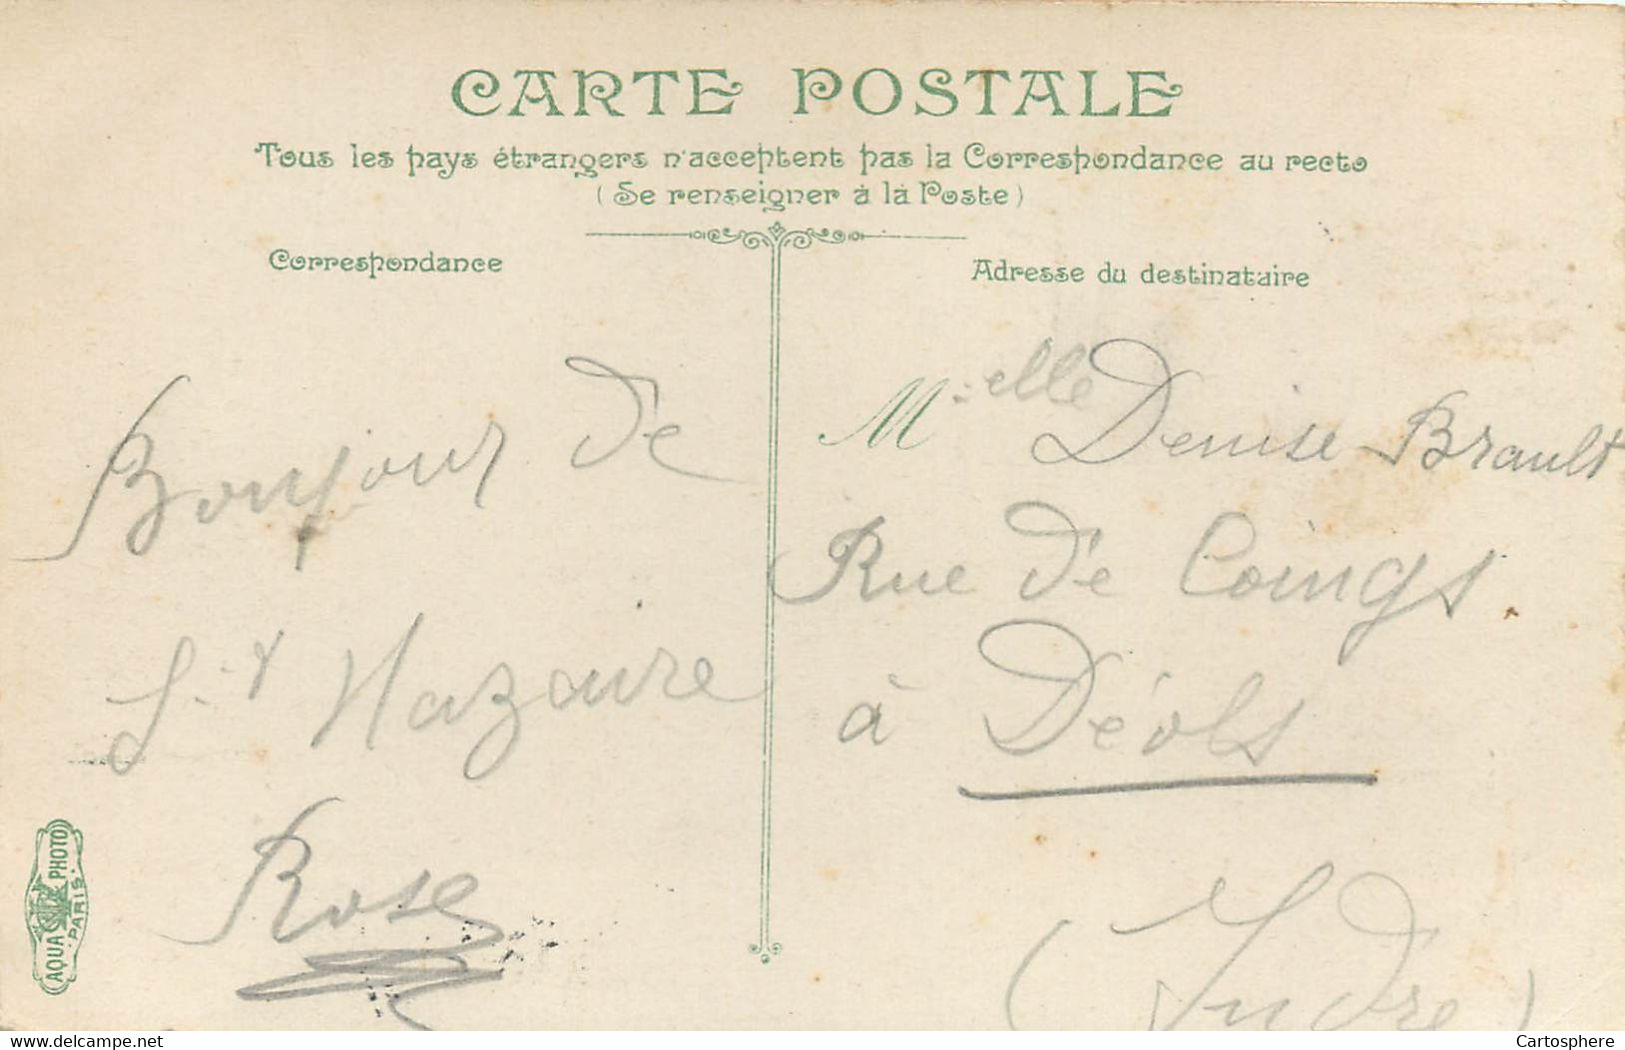 CARTE POSTALE
Tous les pays étrangers n'acceptent pas la Correspondance au recto
(Se renseigner à la Poste)
Correspondance
Bonjour de
St Nazaire
Rose
AQUA PHOTO
PARIS
Adresse du destinataire
Melle Denise Brault
Rue de Coings
à Déols
(Indre)
www.delcampe.net
Cartosphere